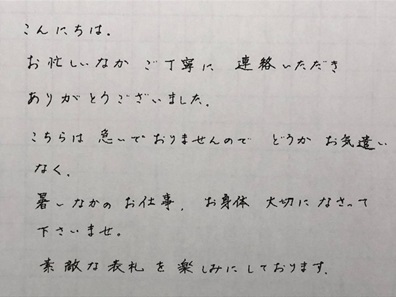 こんにちは.
お忙しいなか ご丁寧に 連絡いただき
ありがとうございました.
こちらは 急いでおりませんので どうか お気遣い
なく.
暑いなかのお仕事, お身体 大切になさって
下さいませ。
素敵な表札を楽しみにしております.